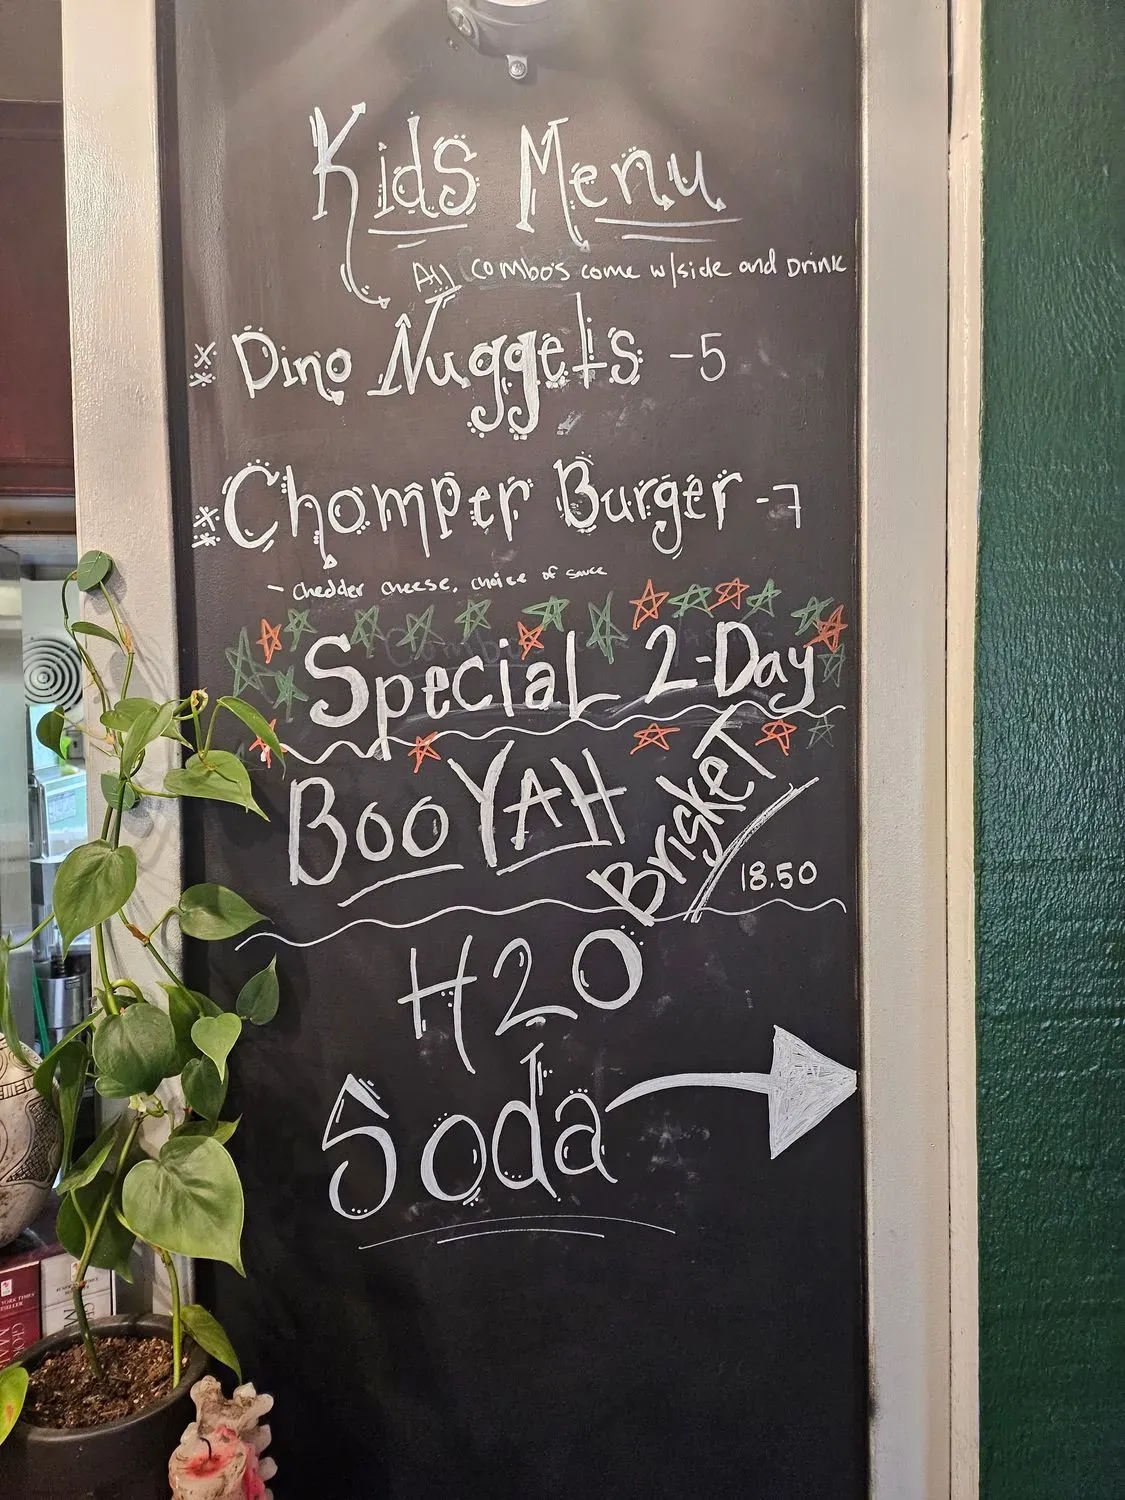 Kids Menu
All combo's come w/side and Drink
Dino Nuggets -5
Chomper Burger -7
- Chedder cheese, choice of sauce
Special 2-Day
BooYAH
BriskeT
18.50
H2O
Soda
YORK TIMES